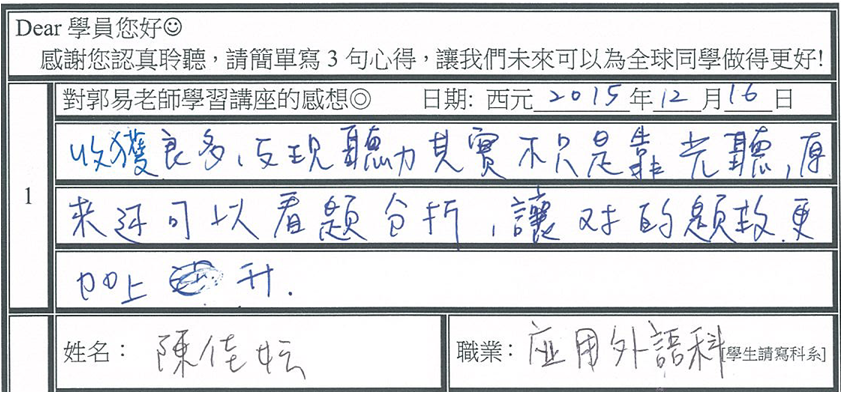 Dear 學員您好☺
感謝您認真聆聽，請簡單寫 3 句心得，讓我們未來可以為全球同學做得更好!
對郭易老師學習講座的感想◎ 日期: 西元 2015 年 12 月 16 日
1
收獲良多，发現聽力其實不只是靠光聽，原
來还可以看題分析，讓对的題数更
加上升.
姓名： 陳佳妘
職業： 应用外語科 [學生請寫科系]